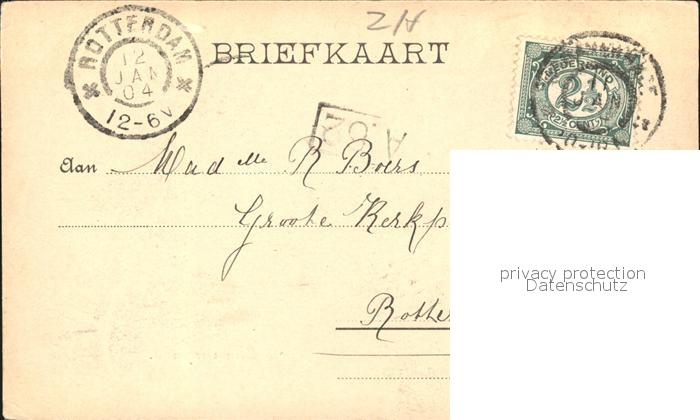 ZIA
ROTTERDAM
12
JAN
04
12-6V
BRIEFKAART
NEDERLAND
2½
2½ CENT
A.02
Aan Mad elle R Boers
Groote Kerkp
Rotte
privacy protection
Datenschutz